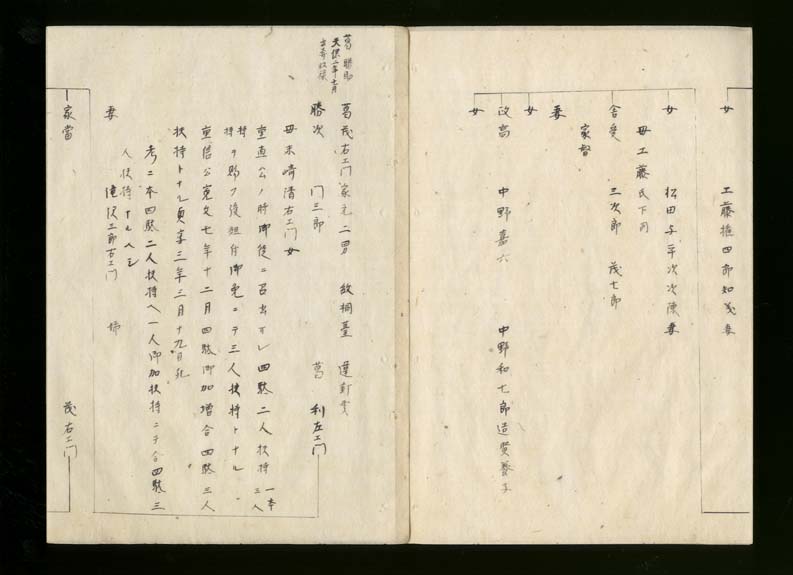 女 工藤 四郎知義妻
女 松田与平次次妻
母工藤氏下同
舎 三次郎 茂七郎
家督
妻
女
改高 中野嘉六 中野和七郎造養子
女
葛
天保二年
葛茂右エ門家元二男 故桐臺
勝次 門三郎 葛 利左エ門
母末崎清右エ門女
重直公ノ時御徒ニ召出サレ四駄二人扶持 一本三人
持ヲ賜フ後組付御免ニテ三人扶持トナル
重信公寛文七年十二月四駄御加増合四駄三人
扶持トナル貞享三年三月十九日死
考ニ本四駄二人扶持ヘ一人御加扶持ニテ合四駄三
人扶持ナルヘシ
妻 三郎右エ門 姉
家当 茂右エ門